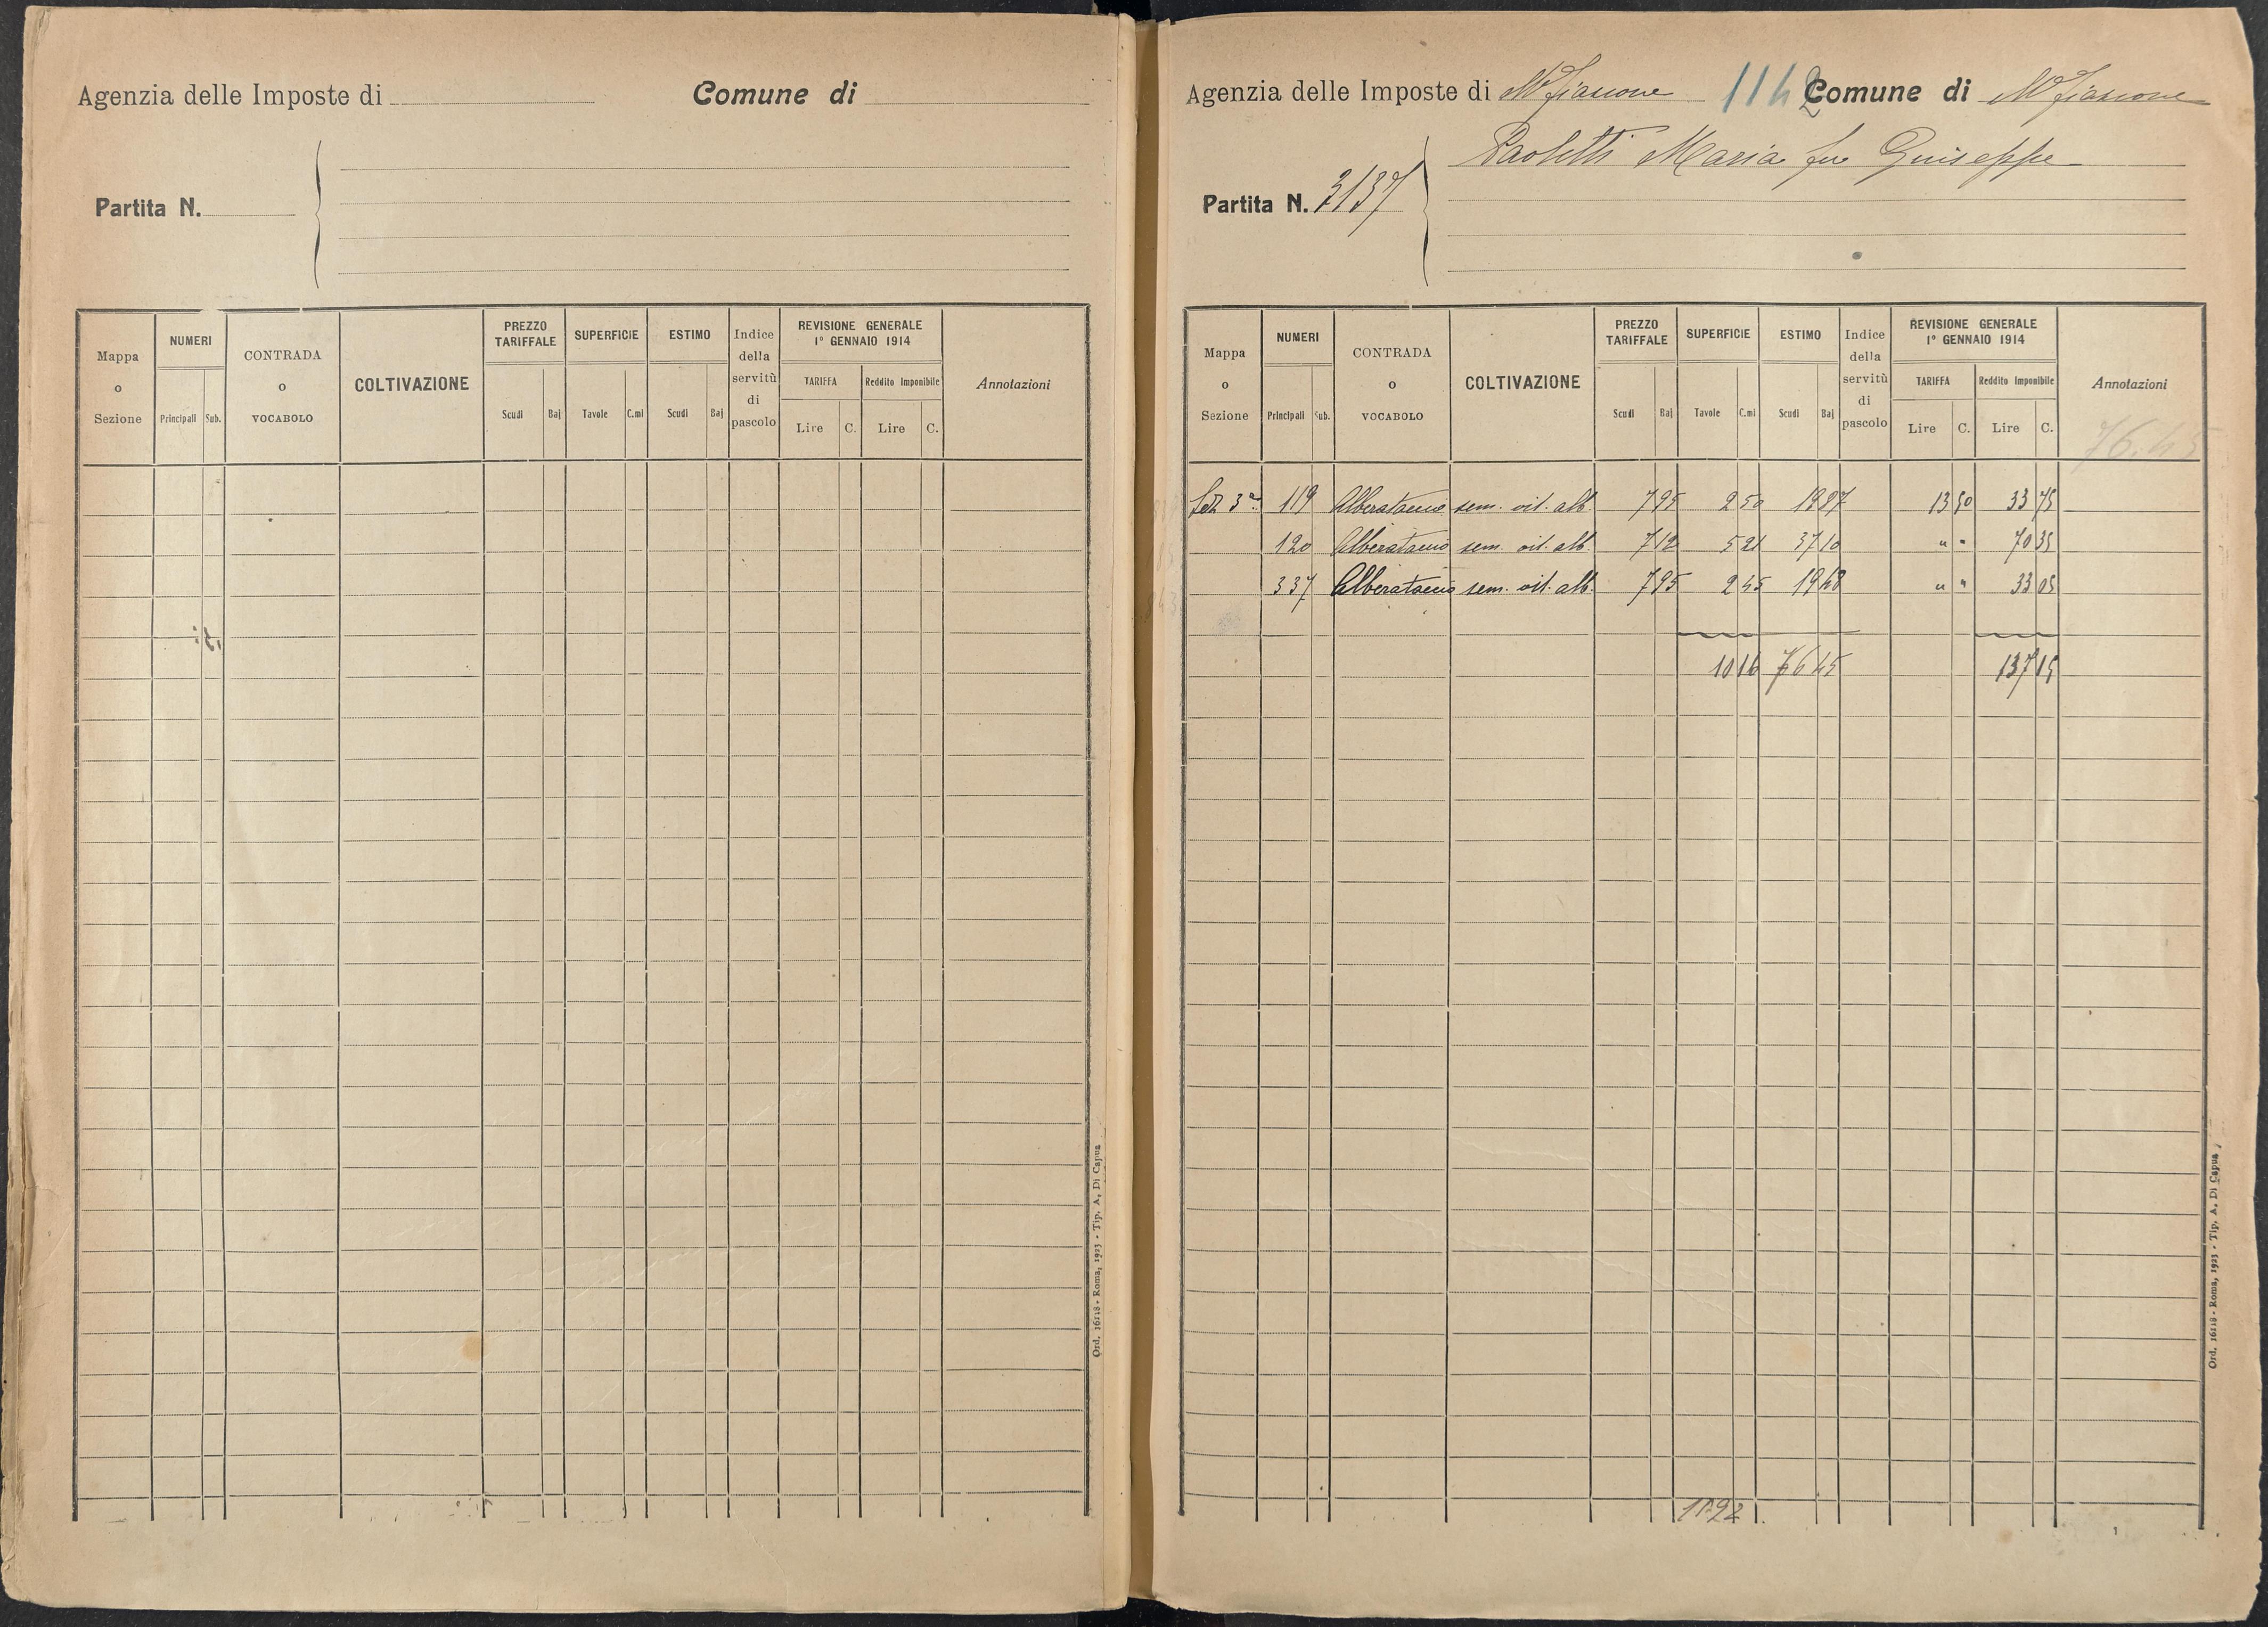 Agenzia delle Imposte di
Comune di
Partita N.
Mappa o Sezione
NUMERI
Principali Sub.
CONTRADA o VOCABOLO
COLTIVAZIONE
PREZZO TARIFFALE
Scudi Baj
SUPERFICIE
Tavole C.mi
ESTIMO
Scudi Baj
Indice della servitù di pascolo
REVISIONE GENERALE
1° GENNAIO 1914
TARIFFA
Lire C.
Reddito Imponibile
Lire C.
Annotazioni
Ord. 16118 - Roma, 1923 - Tip. A. Di Capua
Agenzia delle Imposte di M Fiascone
1142
Comune di M Fiascone
Paoletti Maria fu Giuseppe
Partita N. 3137
Mappa o Sezione
NUMERI
Principali Sub.
CONTRADA o VOCABOLO
COLTIVAZIONE
PREZZO TARIFFALE
Scudi Baj
SUPERFICIE
Tavole C.mi
ESTIMO
Scudi Baj
Indice della servitù di pascolo
REVISIONE GENERALE
1° GENNAIO 1914
TARIFFA
Lire C.
Reddito Imponibile
Lire C.
Annotazioni
76.45
3ª 119 sem. vit. alb. 7 95 2 50 19 87 13 50 33 75
120 sem. vit. alb. 7 12 5 21 37 10 " " 70 35
337 sem. vit. alb. 7 95 2 45 19 48 " " 33 05
10 16 76 45 137 15
Ord. 16118 - Roma, 1923 - Tip. A. Di Capua